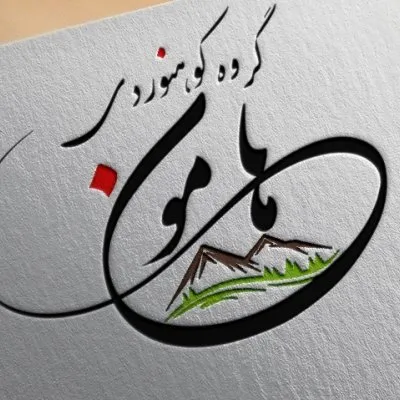 گروه کوهنوردی
هامون